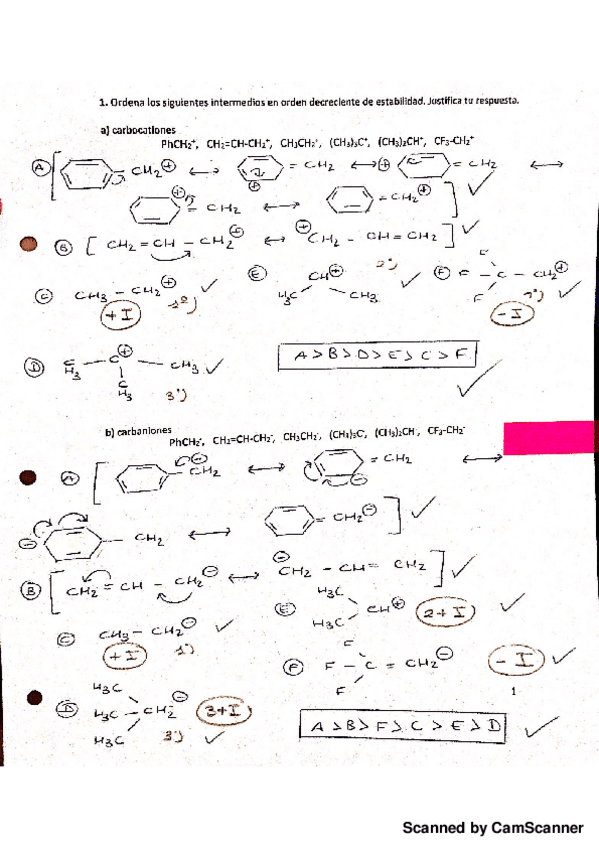 1. Ordena los siguientes intermedios en orden decreciente de estabilidad. Justifica tu respuesta.
a) carbocationes
PhCH2+, CH2=CH-CH2+, CH3CH2+, (CH3)3C+, (CH3)2CH+, CF3-CH2+
A [ CH2 ⊕ ↔ ⊕ = CH2 ↔ ⊕ = CH2 ↔
⊕ = CH2 ↔ = CH2 ⊕ ] ✓
B [ CH2 = CH - CH2 ⊕ ↔ ⊕ CH2 - CH = CH2 ] ✓
C CH3 - CH2 ⊕ ✓ +I 1º)
E CH ⊕ H3C CH3 ✓ 2º)
F F F F - C - CH2 ⊕ ✓ 1º) -I
D C H3 - C ⊕ - CH3 ✓ C H3 3º)
A > B > D > E > C > F ✓
b) carbaniones
PhCH2-, CH2=CH-CH2-, CH3CH2-, (CH3)3C-, (CH3)2CH-, CF3-CH2-
A [ ⊖ CH2 ↔ ⊖ = CH2 ↔
⊖ - CH2 ↔ = CH2 ⊖ ] ✓
B [ CH2 = CH - CH2 ⊖ ↔ ⊖ CH2 - CH = CH2 ] ✓
C CH3 - CH2 ⊖ ✓ +I 1º)
E H3C H3C CH ⊕ 2+I ✓
F F F - C = CH2 ⊖ F -I ✓
1
D H3C H3C - CH2 ⊖ H3C 3+I 3º) ✓
A > B > F > C > E > D ✓
Scanned by CamScanner